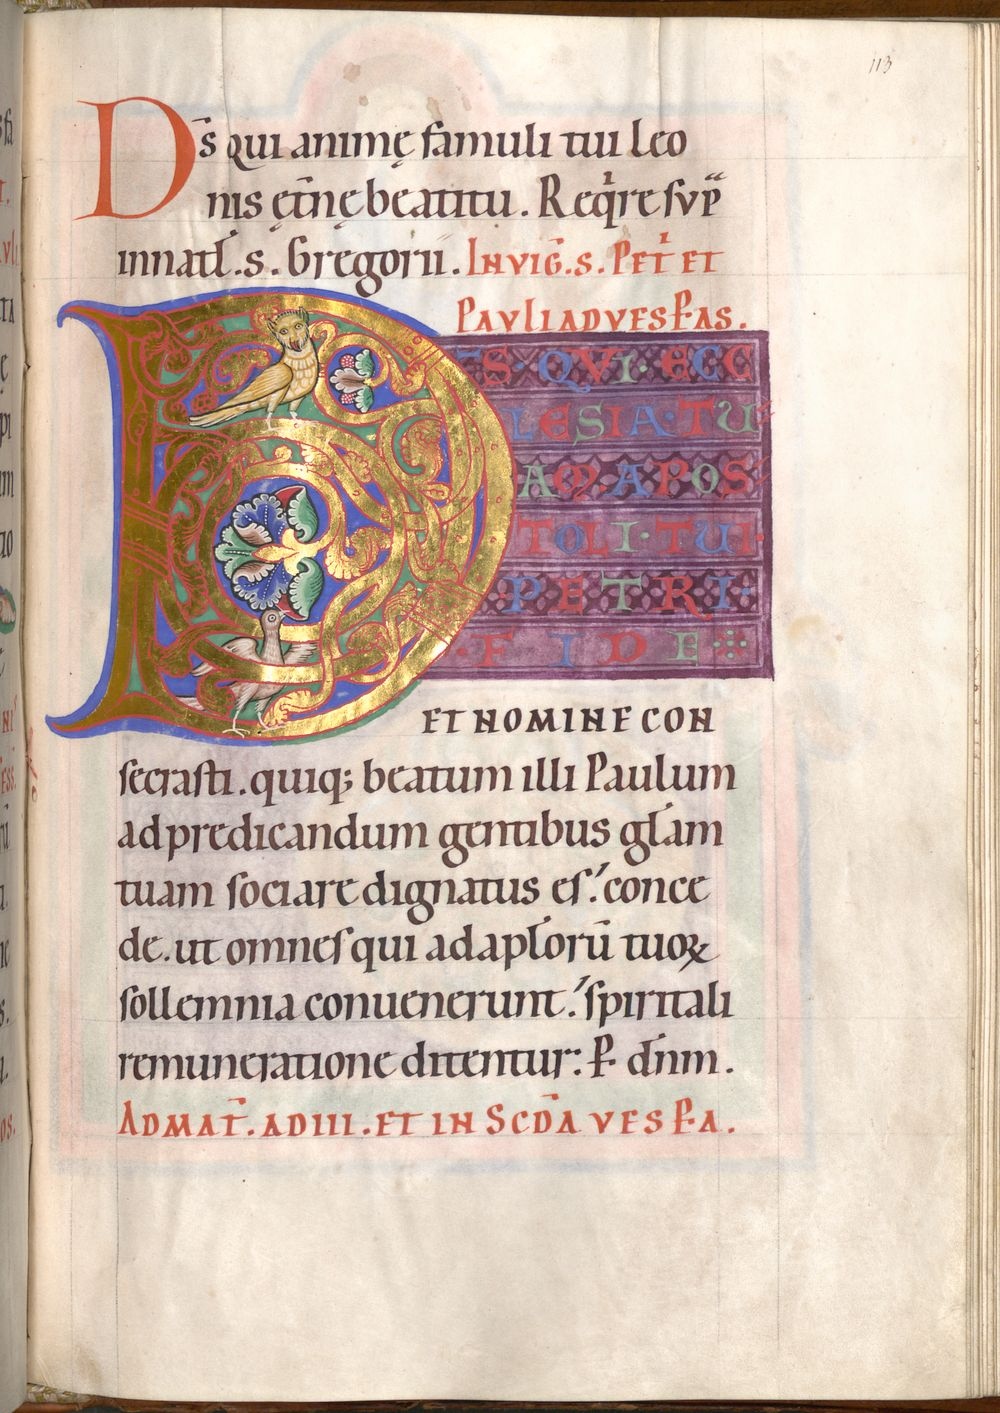 113
Ds̄ qui animę famuli tui Leo
nis ęt̄nę beatitu. Reqͥre sup̄
in natł. s. Gregorii. IN VIG̅. S. PETͥ ET
PAVLI AD VESP̱AS.
DS̄ QVI ECC
LESIA TU
AM APOS
TOLI TUI
PETRI
FIDE
ET NOMINE CON
secrasti. quiq; beatum illi Paulum
ad predicandum gentibus głam
tuam sociare dignatus es. conce
de. ut omnes qui ad aptłorū tuoꝝ
sollemnia conuenerunt. spiritali
remuneratione ditentur: ꝑ dn̄m.
AD MAT̄. AD III. ET IN SCD̄A VESꝐA.